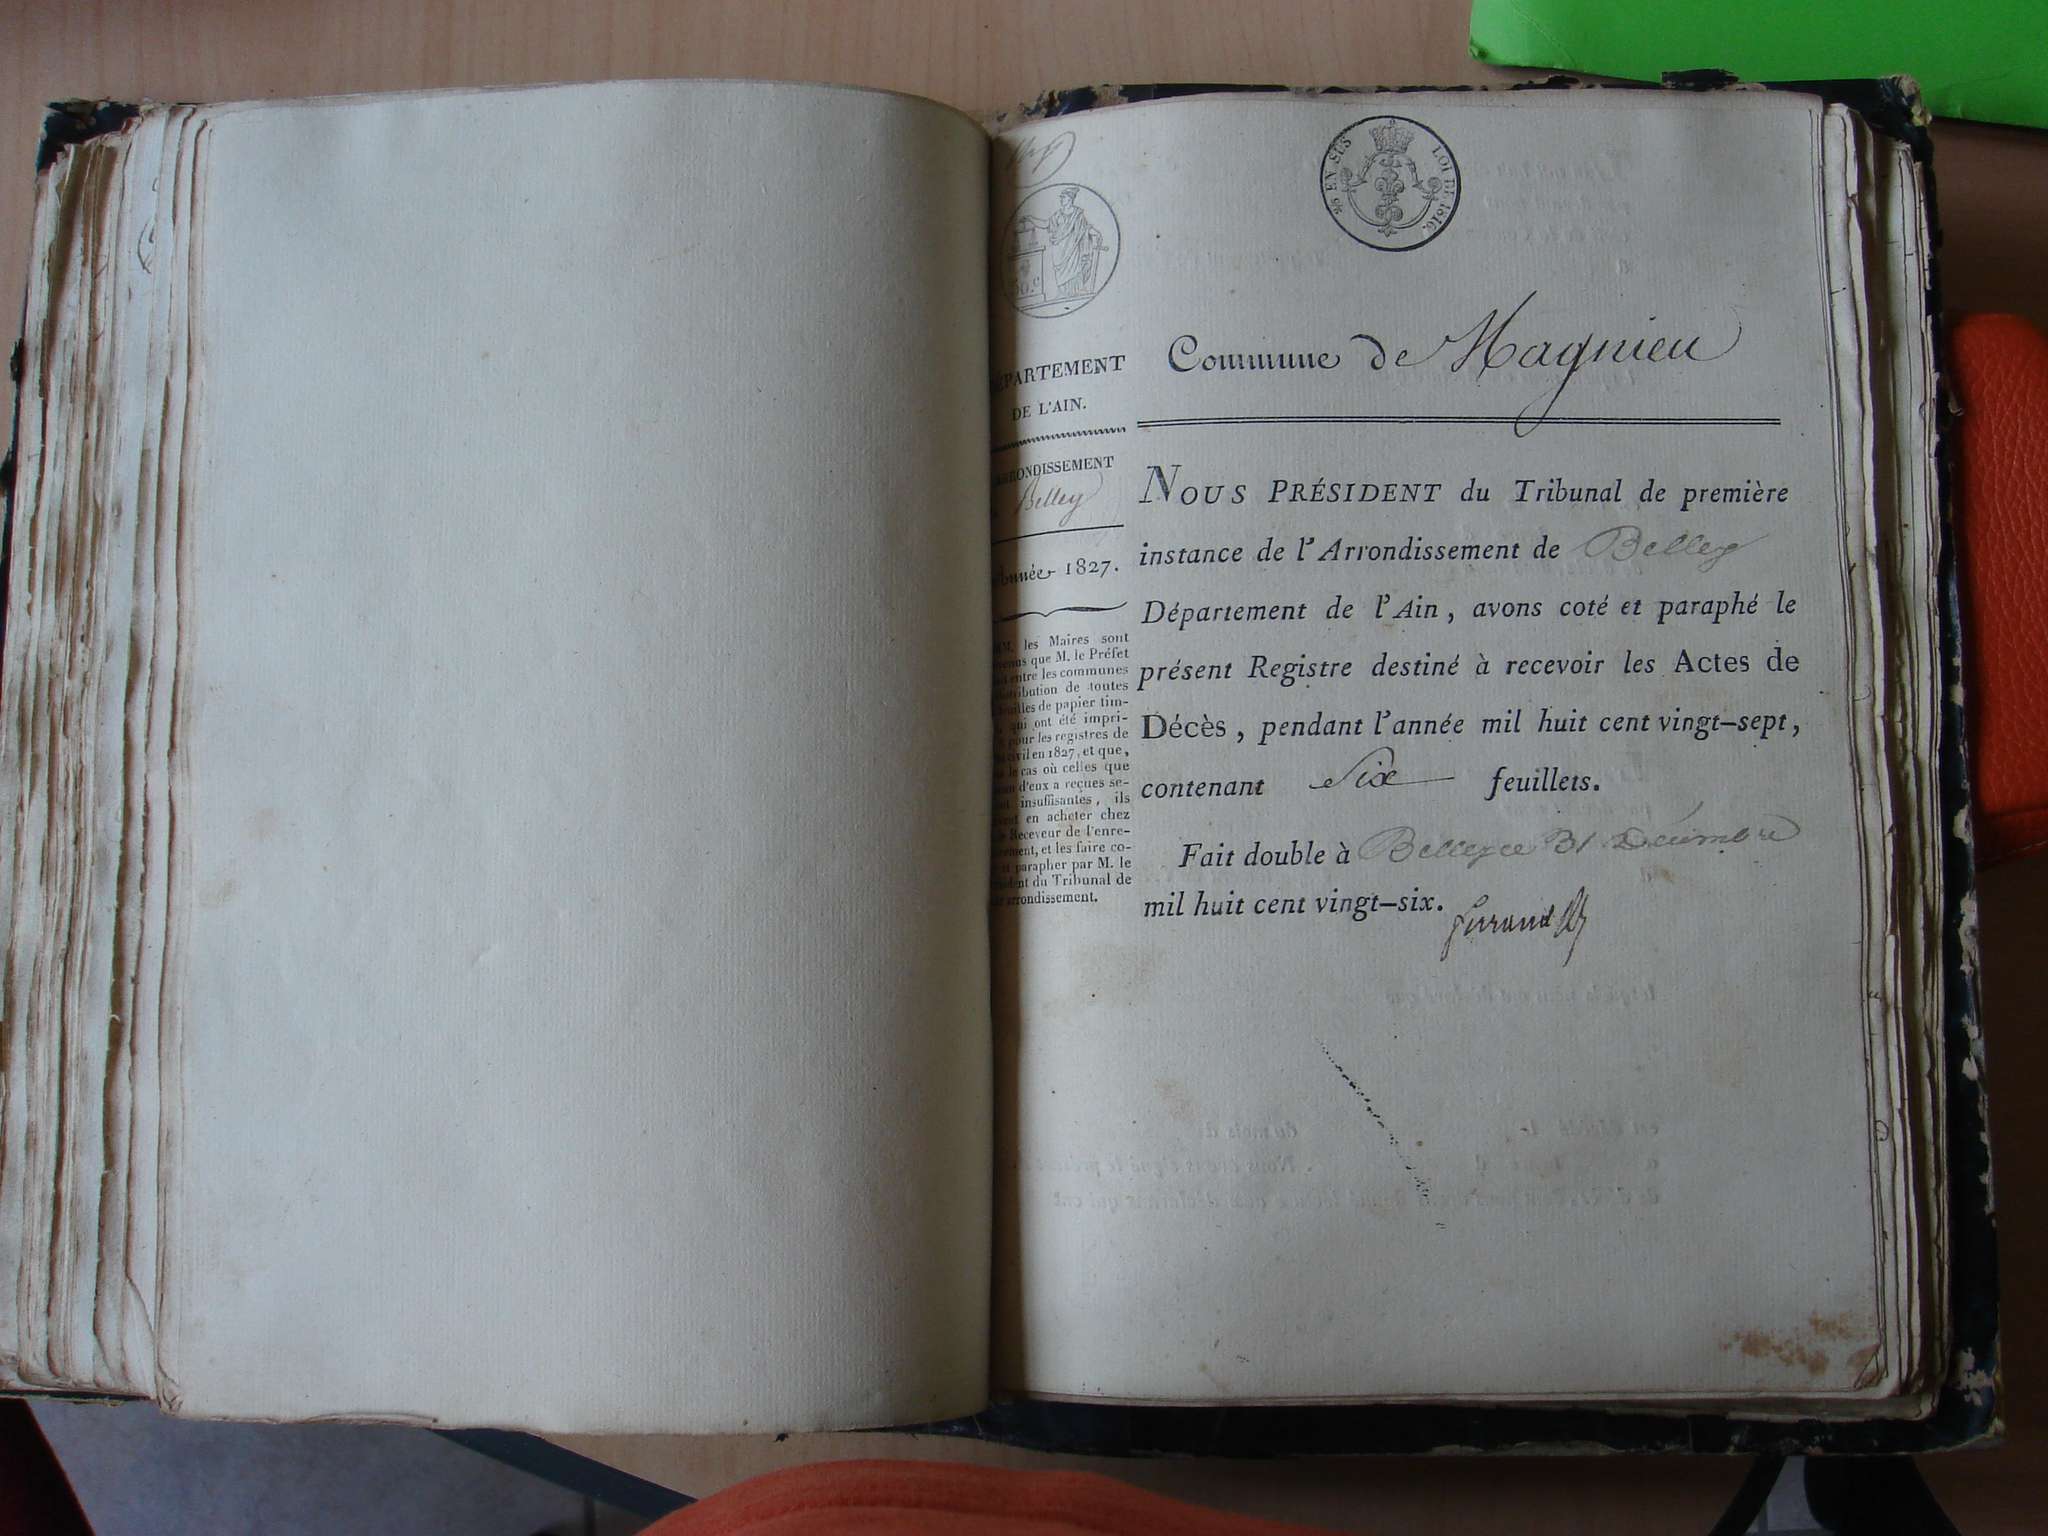 50.c
DÉPARTEMENT
DE L'AIN.
ARRONDISSEMENT
Belley
Année 1827.
MM. les Maires sont
que M. le Préfet
entre les communes
distribution de toutes
feuilles de papier tim-
qui ont été impri-
pour les registres de
civil en 1827, et que,
le cas où celles que
d'eux a reçues se-
insuffisantes, ils
en acheter chez
Receveur de l'enre-
et les faire co-
parapher par M. le
du Tribunal de
arrondissement.
% EN SUS LOI DE 1816.
Commune de Magnieu
NOUS PRÉSIDENT du Tribunal de première
instance de l'Arrondissement de Belley
Département de l'Ain, avons coté et paraphé le
présent Registre destiné à recevoir les Actes de
Décès, pendant l'année mil huit cent vingt-sept,
contenant Six feuillets.
Fait double à Belley ce 31 Décembre
mil huit cent vingt-six.